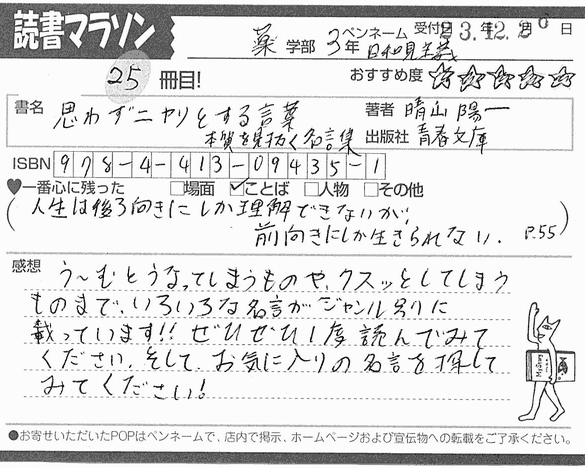 読書マラソン
薬学部 3年
ペンネーム 日和見主義
受付日 23年12月20日
25冊目!
おすすめ度 ☆☆☆☆☆
書名 思わずニヤリとする言葉
本質を見抜く名言集
著者 晴山陽一
出版社 青春文庫
ISBN 978-4-413-09435-1
♥一番心に残った □場面 ☑ことば □人物 □その他
(人生は後ろ向きにしか理解できないが、
前向きにしか生きられない。 P.55)
感想
う〜むとうなってしまうものや、クスッとしてしまう
ものまで、いろいろな名言がジャンル別に
載っています!!ぜひぜひ1度読んでみて
ください。そして、お気に入りの名言を探して
みてください!
●お寄せいただいたPOPはペンネームで、店内で掲示、ホームページおよび宣伝物への転載をご了承ください。